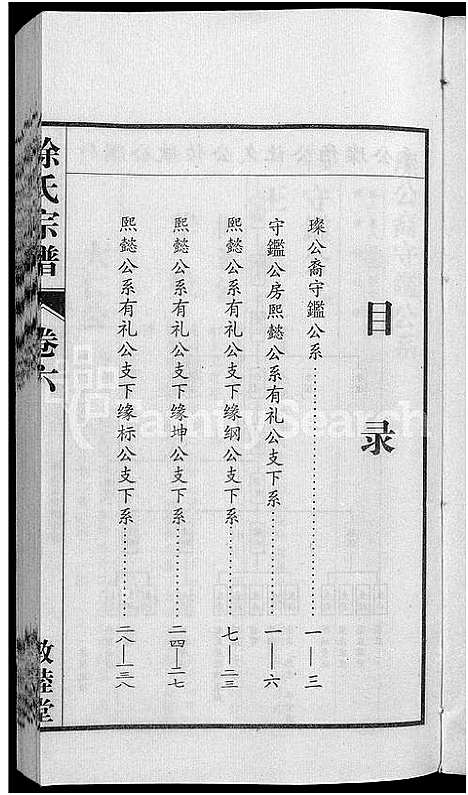 目录
璨公裔守鑑公系…………………一——三
守鑑公房熙懿公系有礼公支下系…………一——六
熙懿公系有礼公支下缘纲公支下系…………七——二三
熙懿公系有礼公支下缘坤公支下系…………二四——二七
熙懿公系有礼公支下缘标公支下系…………二八——一三八
徐氏宗谱
卷六
敦睦堂
FamilySearch